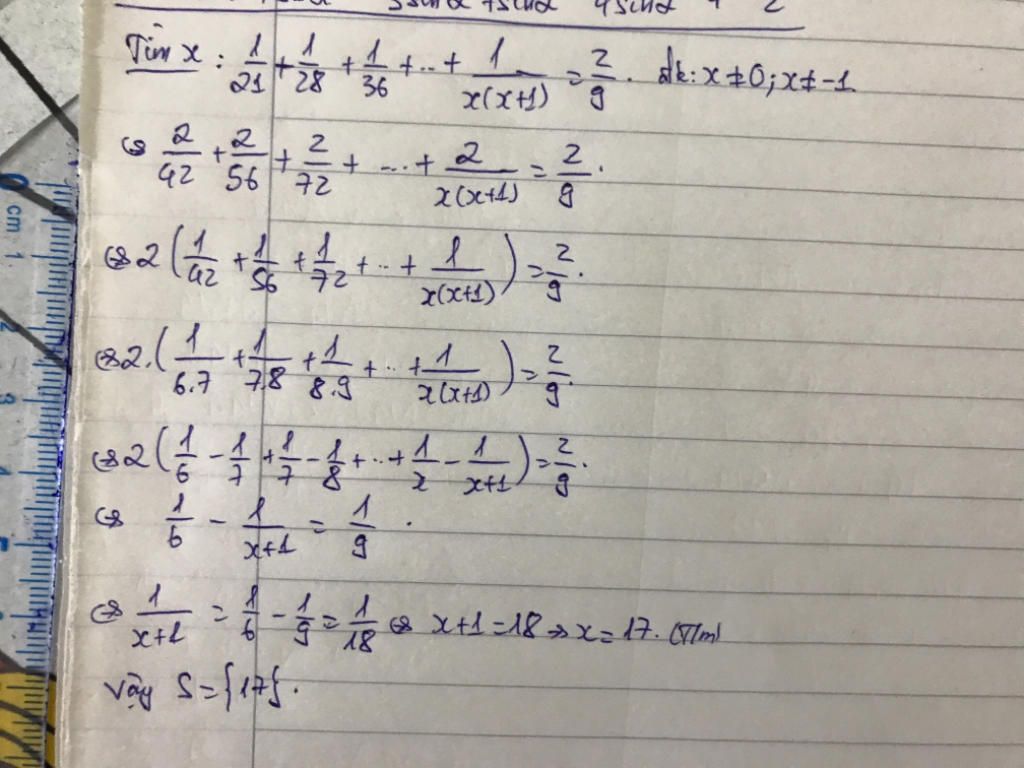 Tìm x : 1/21 + 1/28 + 1/36 + .. + 1/x(x+1) = 2/9 . đk: x ≠ 0; x ≠ -1
⇔ 2/42 + 2/56 + 2/72 + ... + 2/x(x+1) = 2/9 .
⇔ 2 (1/42 + 1/56 + 1/72 + .. + 1/x(x+1)) = 2/9 .
⇔ 2. (1/6.7 + 1/7.8 + 1/8.9 + .. + 1/x(x+1)) = 2/9 .
⇔ 2 (1/6 - 1/7 + 1/7 - 1/8 + .. + 1/x - 1/x+1) = 2/9 .
⇔ 1/6 - 1/x+1 = 1/9 .
⇔ 1/x+1 = 1/6 - 1/9 = 1/18 ⇔ x+1 = 18 ⇒ x = 17. (TM)
Vậy S = {17} .